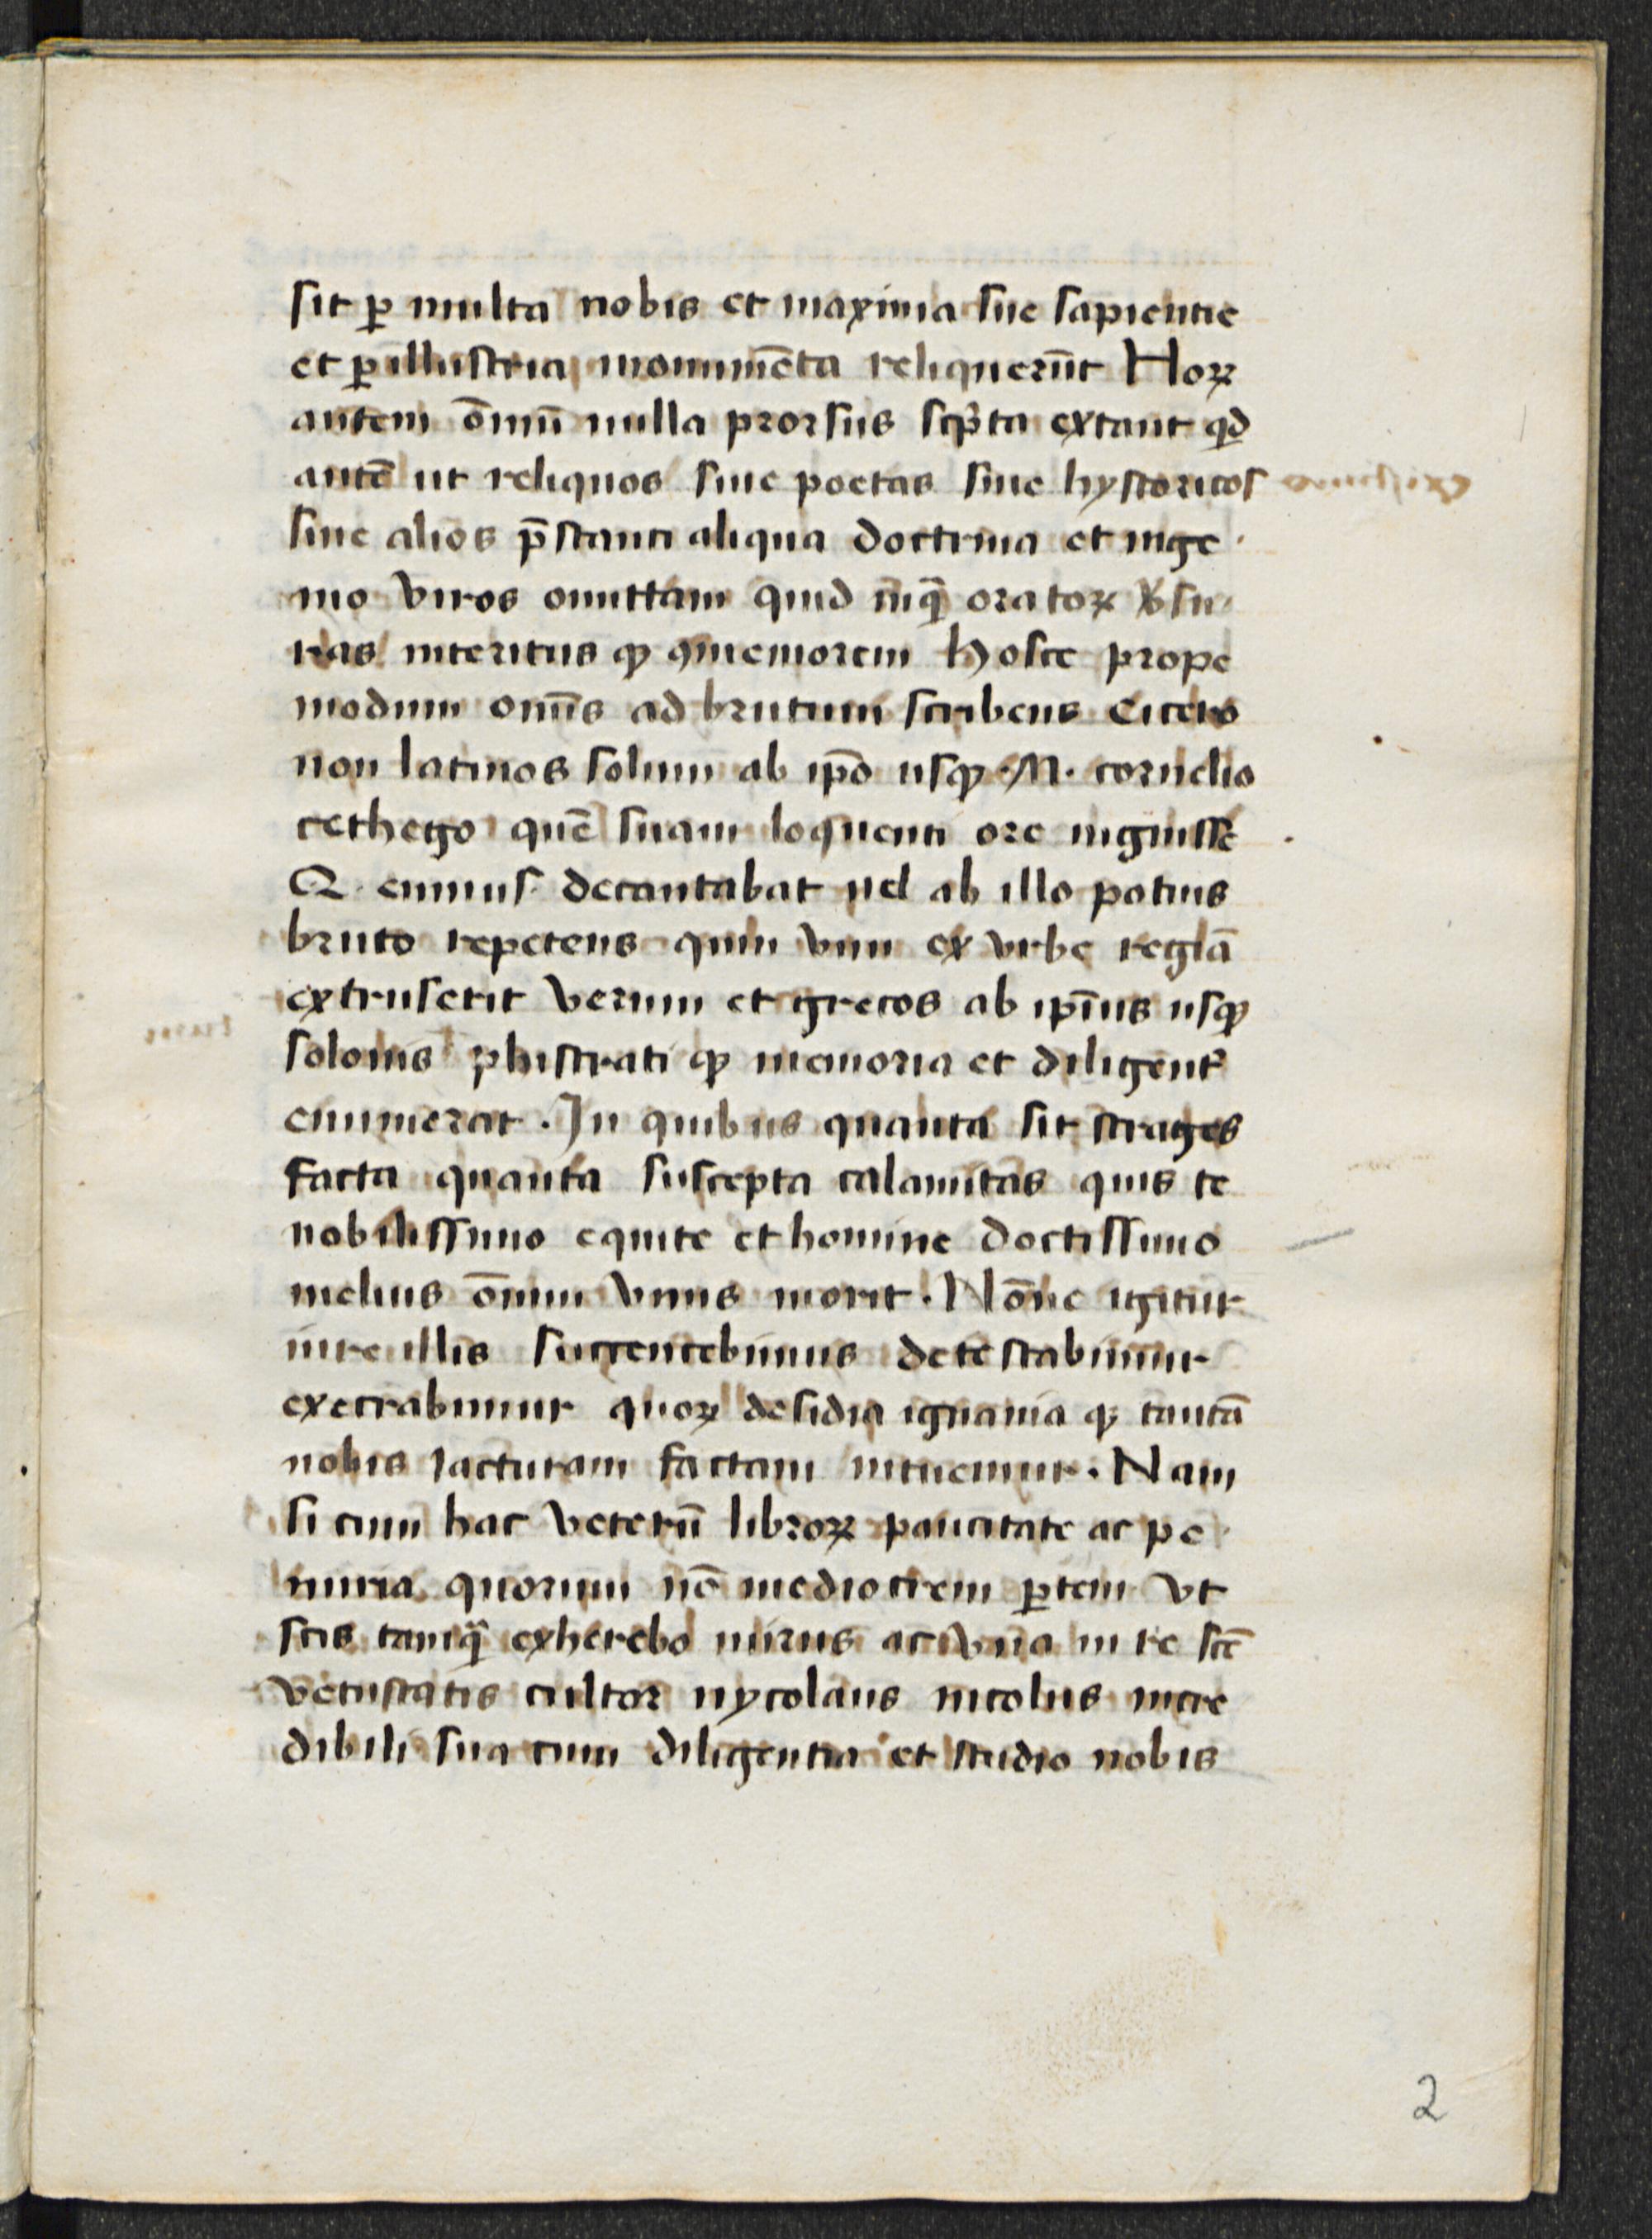 sit ꝑ multa nobis et maxima sue sapientie
et ꝑillustria monumēta reliquerūt Hoꝝ
autem om̄iū nulla prorsus scpͥta extant qͥd
autē ut reliquos siue poetas siue hystoricos
siue alios p̄stanti aliqua doctrina et inge
nio viros omittam quid inqͣ oratoꝝ
interitus qꝫ ꝯmemorem hosce prope
modum om̄is ad brutum scribens Cicero
non latinos solum ab ip̄o usqꝫ .M. cornelio
cethego quē suam loquenti ore
Q. ennius decantabat uel ab illo potius
bruto repetens qui vim ex vrbe regiā
extruserit verum et grecos ab ip̄ius usqꝫ
solonis phistrati qꝫ memoria et diligent᷑
enumerat. In quibus quanta sit strages
facta quanta suscepta calamitas quis te
nobilissimo equite et homine doctissimo
melius om̄ium vnus norit. Nōne igitur
iure illis detestabimur
execrabimur quoꝝ desidia ignauia qꝫ tantā
nobis iacturam factam intuemur. Nam
si cum hac veterū libroꝝ paucitate ac pe
nuria quorum nō mediocrem ꝑtem vt
scis tamqͣ exherebo mirus ac vna in re scē
vetustatis cultor nycolaus nicolus incre
dibili sua cum diligentia et studio nobis
2